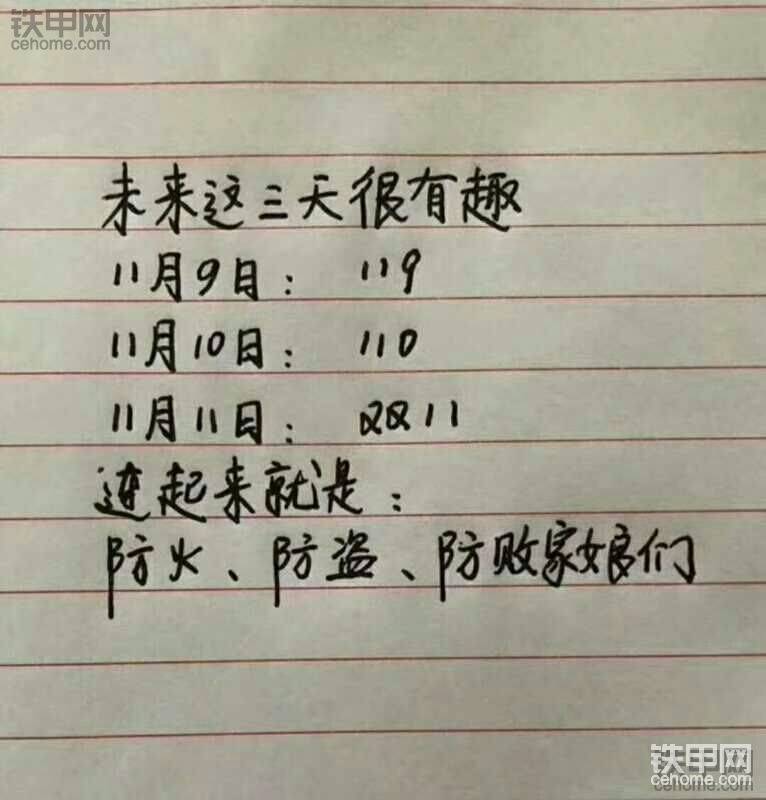 铁甲网
cehome.com
未来这三天很有趣
11月9日： 119
11月10日： 110
11月11日： 双11
连起来就是：
防火、防盗、防败家娘们
铁甲网
cehome.com